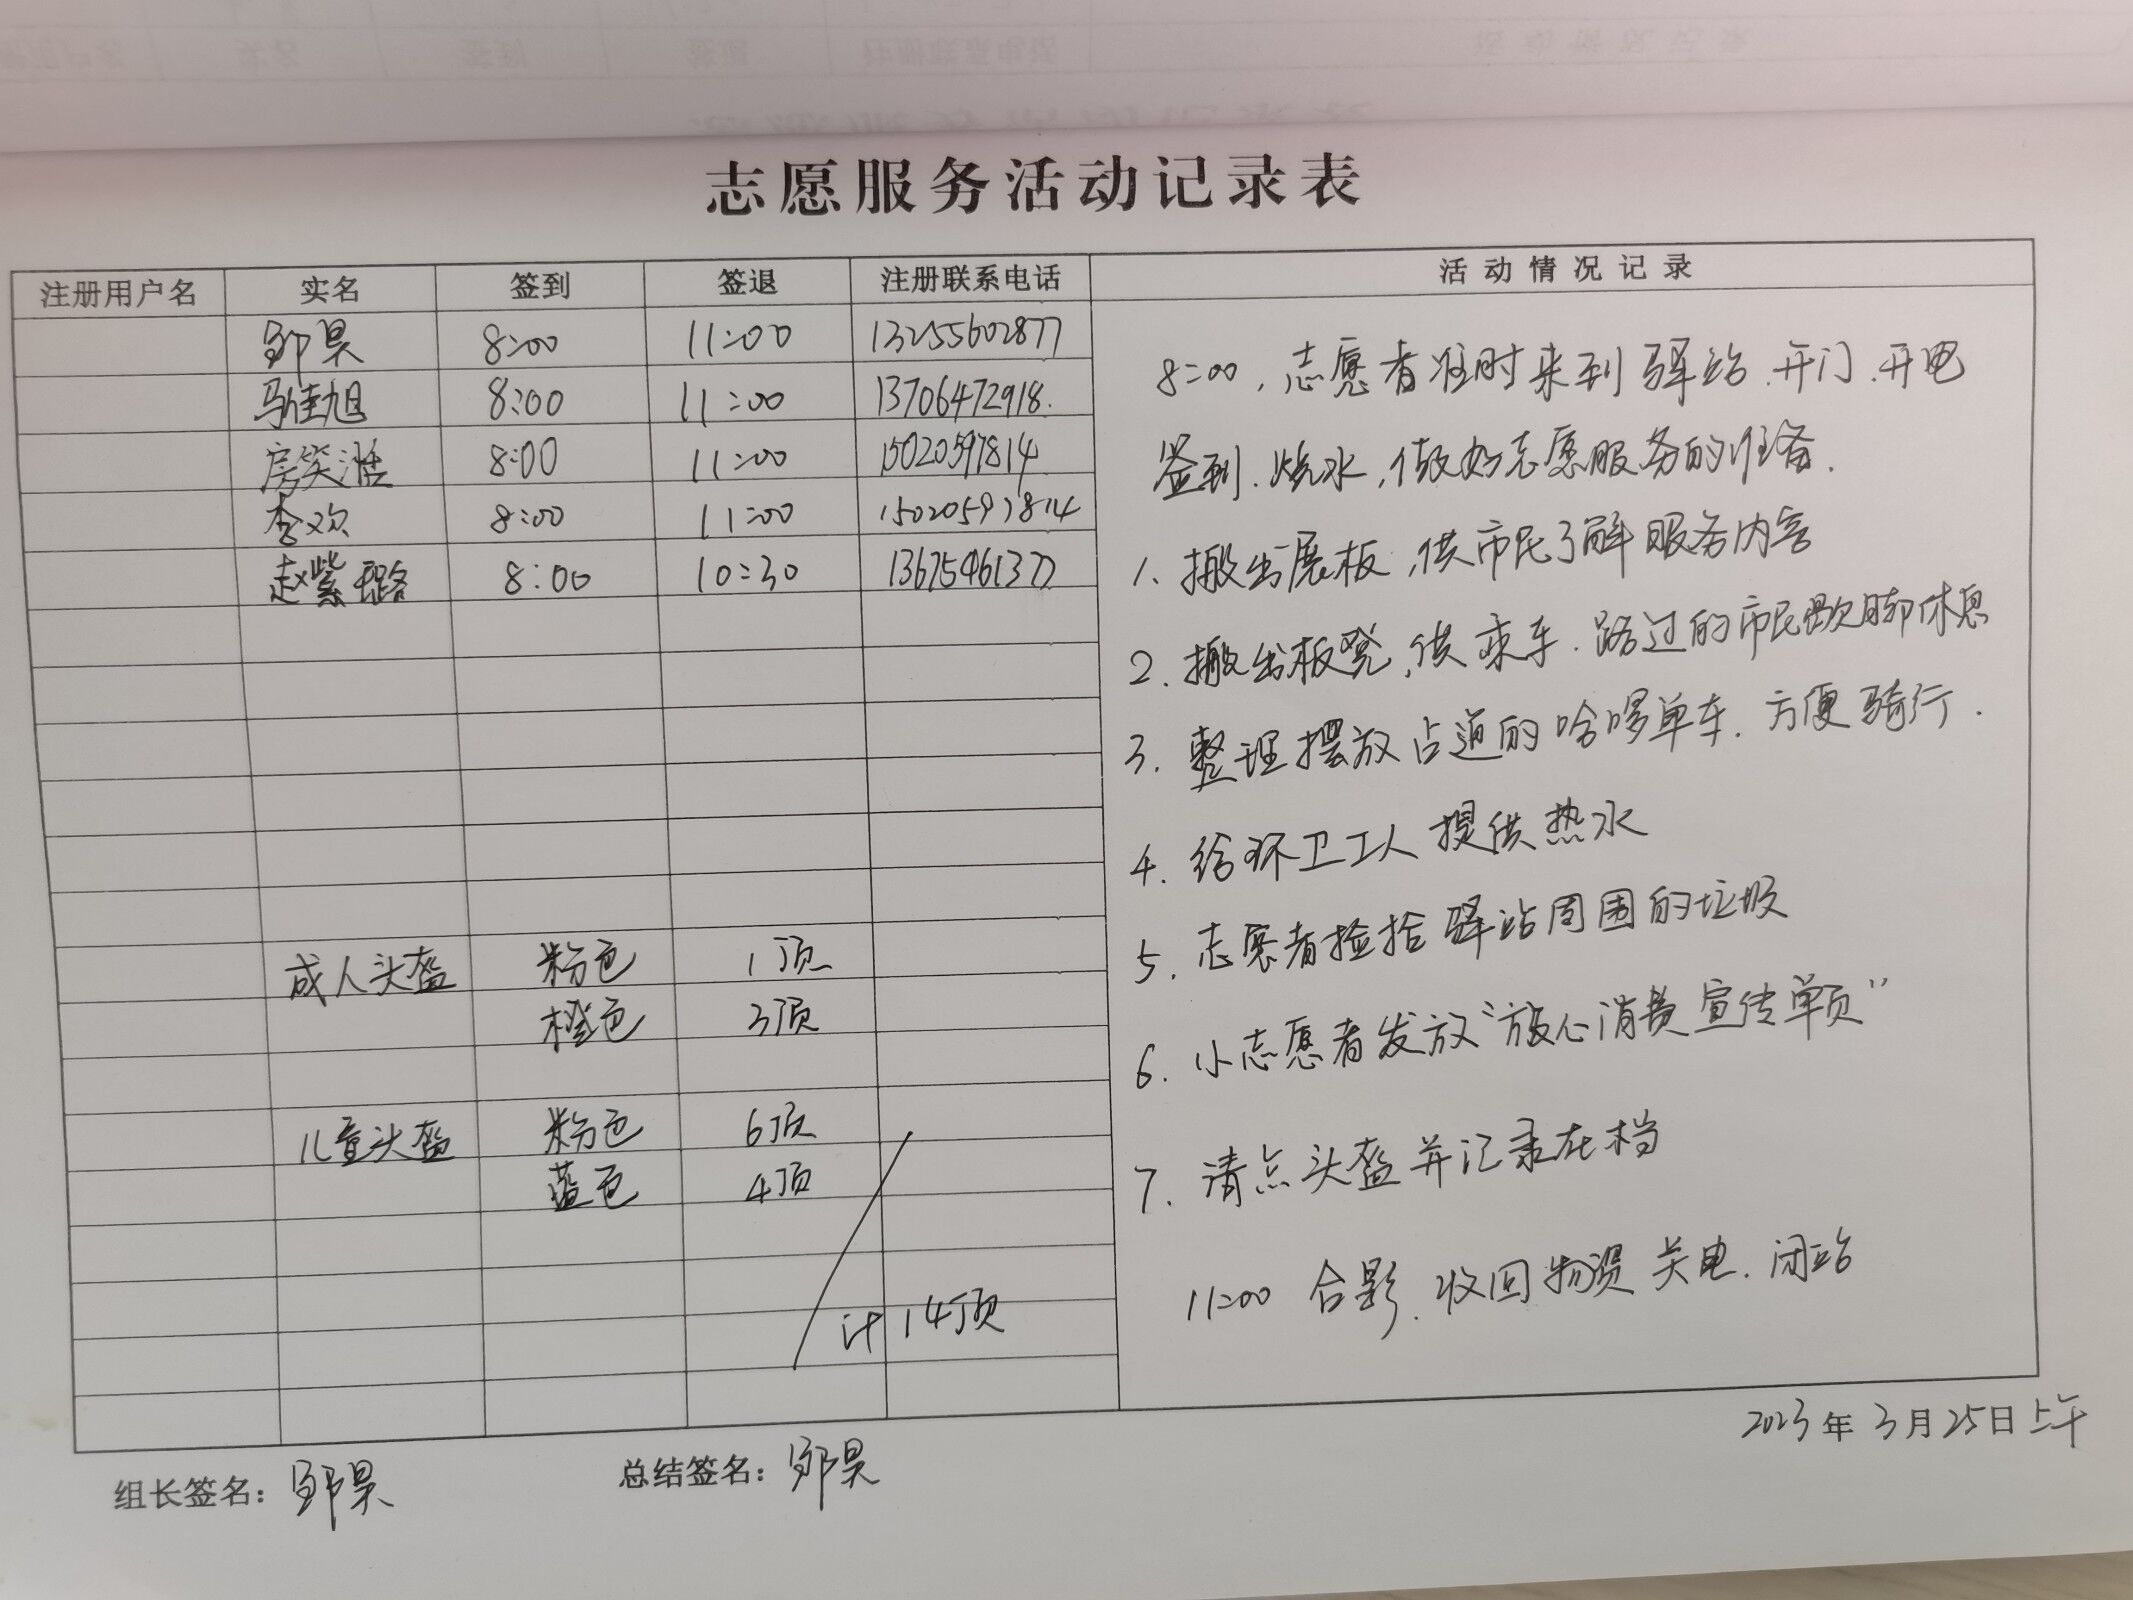 志愿服务活动记录表
注册用户名 实名 签到 签退 注册联系电话 活动情况记录
邹昊 8:00 11:00 13255602877
马佳旭 8:00 11:00 13706472918.
房笑湉 8:00 11:00 15020597814
李欢 8:00 11:00 15020597814
赵紫璐 8:00 10:30 13675461377
成人头盔 粉色 1顶
橙色 3顶
儿童头盔 粉色 6顶
蓝色 4顶
计14顶
8:00，志愿者准时来到驿站.开门.开电
签到.烧水，做好志愿服务的准备.
1、搬出展板，供市民了解服务内容
2.搬出板凳，供乘车.路过的市民歇脚休息
3.整理摆放占道的哈啰单车.方便骑行.
4.给环卫工人提供热水
5.志愿者捡拾驿站周围的垃圾
6.小志愿者发放“放心消费宣传单页”
7.清点头盔并记录在档
11:00 合影.收回物资 关电.闭站
2023年3月25日上午
组长签名：邹昊 总结签名：邹昊